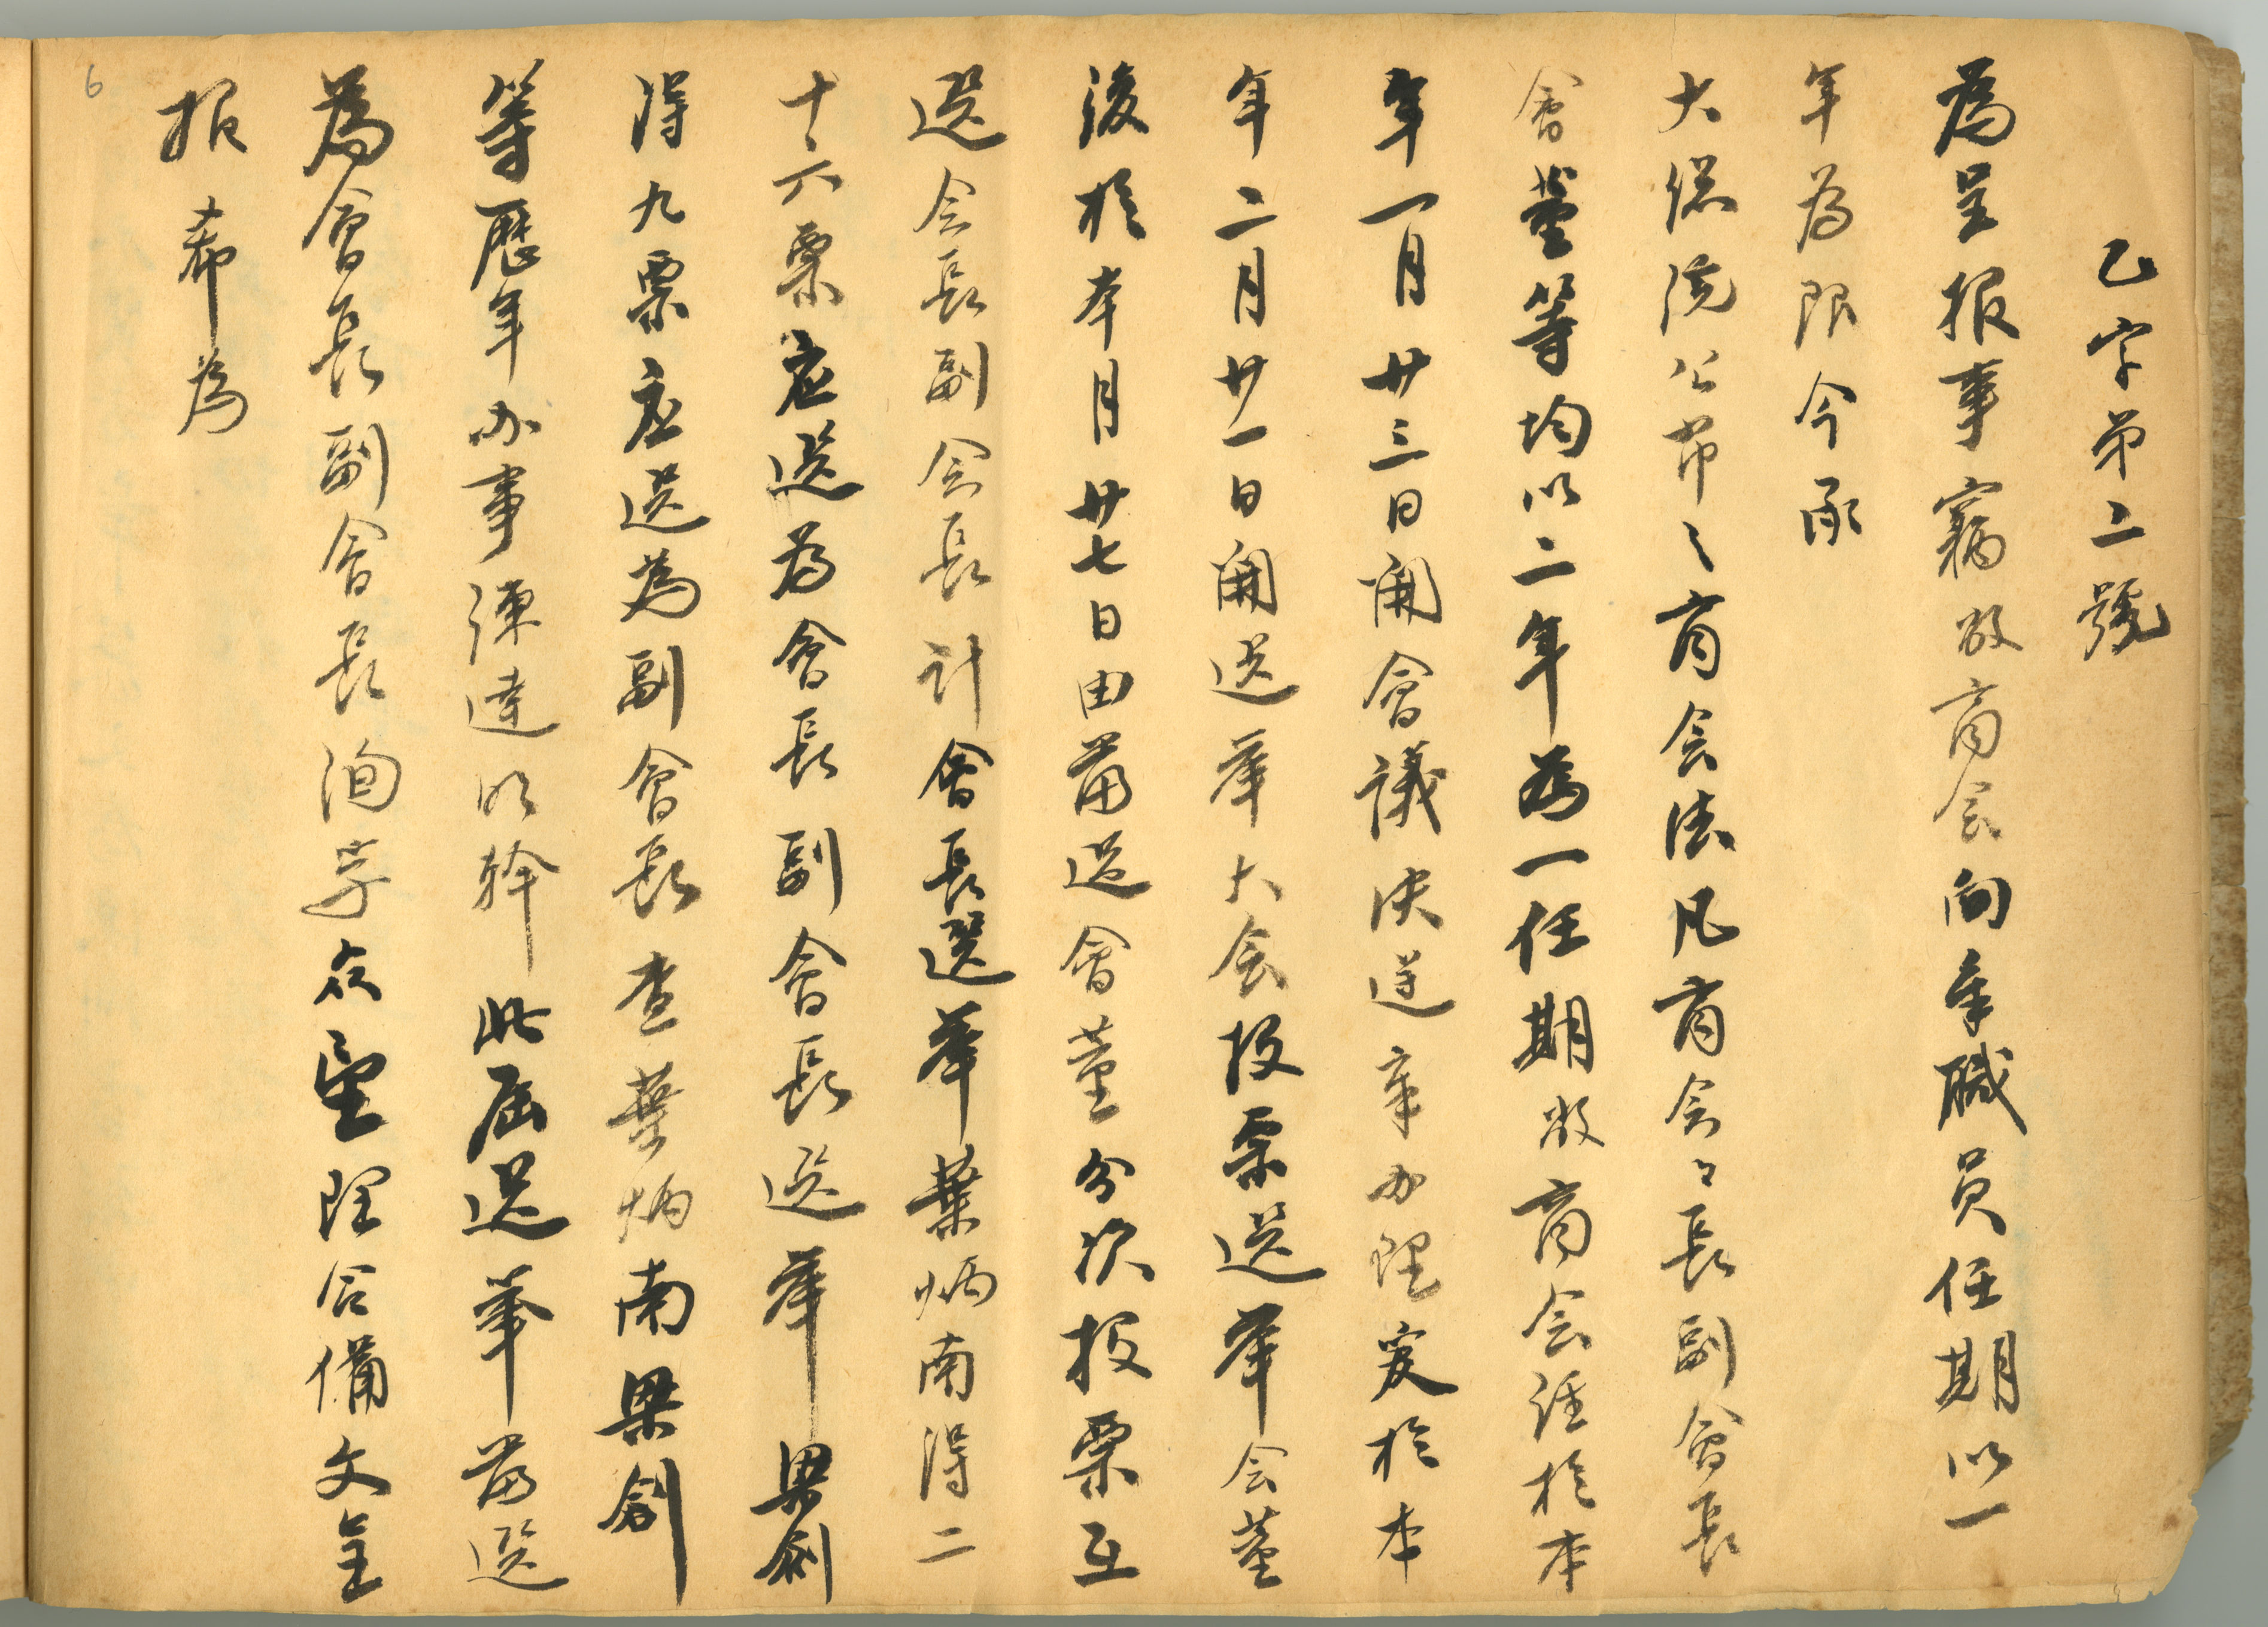 乙字第二號
為呈报事竊敝商会向章職員任期以一
年為限今承
大總統公布之商会法凡商会々長副會長
會董等均以二年為一任期敝商会經於本
年一月廿三日開會議决遵章办理爰於本
年二月廿一日開选舉大会投票選舉会董
後於本月廿七日由當选會董分次投票互
選会長副会長計會長選舉葉炳南得二
十六票应选为會長副會長选舉梁創
得九票应选為副會長查葉炳南梁創
等歷年办事練達明幹此屆选舉當选
為會長副會長洵孚众望理合備文呈
报希為
6